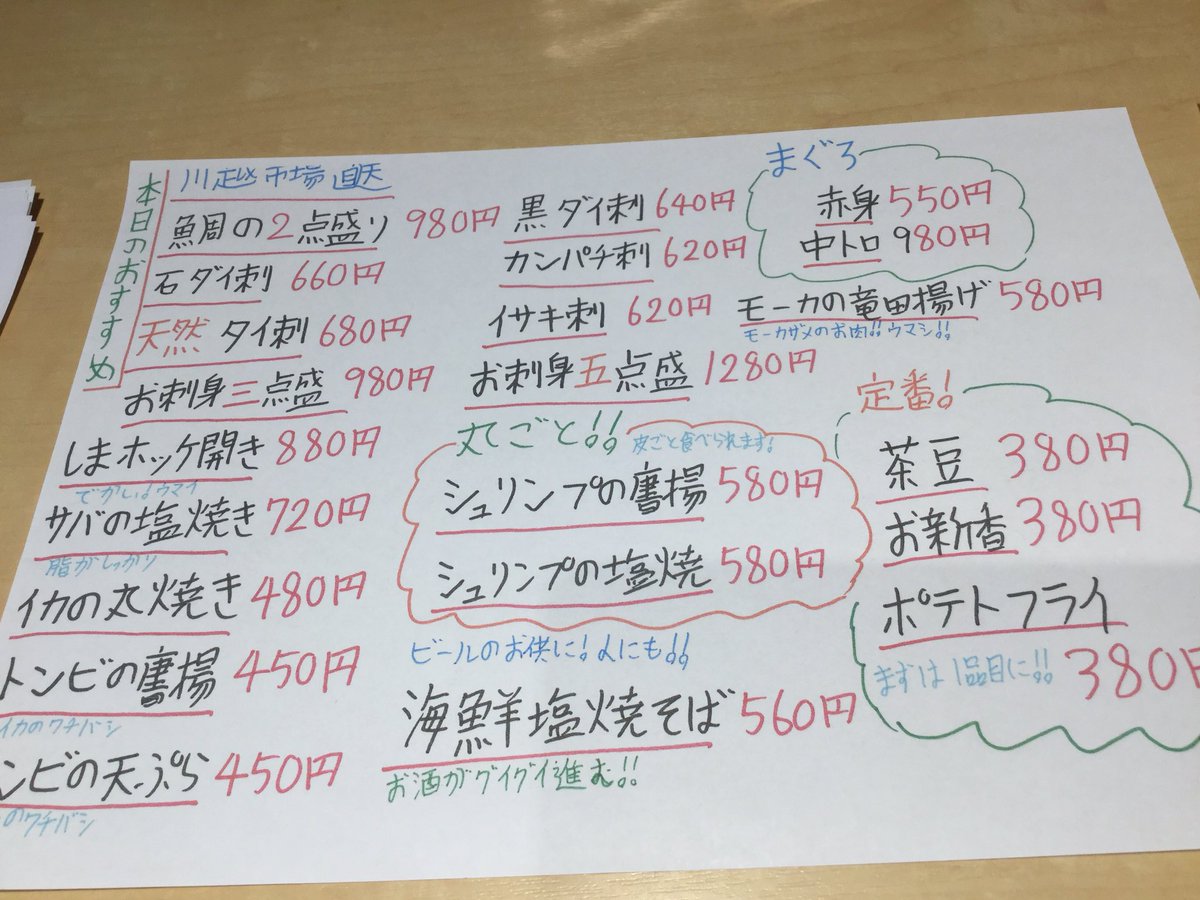 本日のおすすめ
川越市場直送
魚周の2点盛り 980円
石ダイ刺 660円
天然タイ刺 680円
お刺身三点盛 980円
しまホッケ開き 880円
でかい!ウマイ
サバの塩焼き 720円
脂がしっかり
イカの丸焼き 480円
トンビの唐揚 450円
イカのクチバシ
ンビの天ぷら 450円
のクチバシ
黒ダイ刺 640円
カンパチ刺 620円
イサキ刺 620円
お刺身五点盛 1280円
丸ごと!!
皮ごと食べられます!
シュリンプの唐揚 580円
シュリンプの塩焼 580円
ビールのお供に!〆にも!!
海鮮塩焼そば 560円
お酒がグイグイ進む!!
まぐろ
赤身 550円
中トロ 980円
モーカの竜田揚げ 580円
モーカザメのお肉!!ウマシ!!
定番!
茶豆 380円
お新香 380円
ポテトフライ
まずは1品目に!! 380円